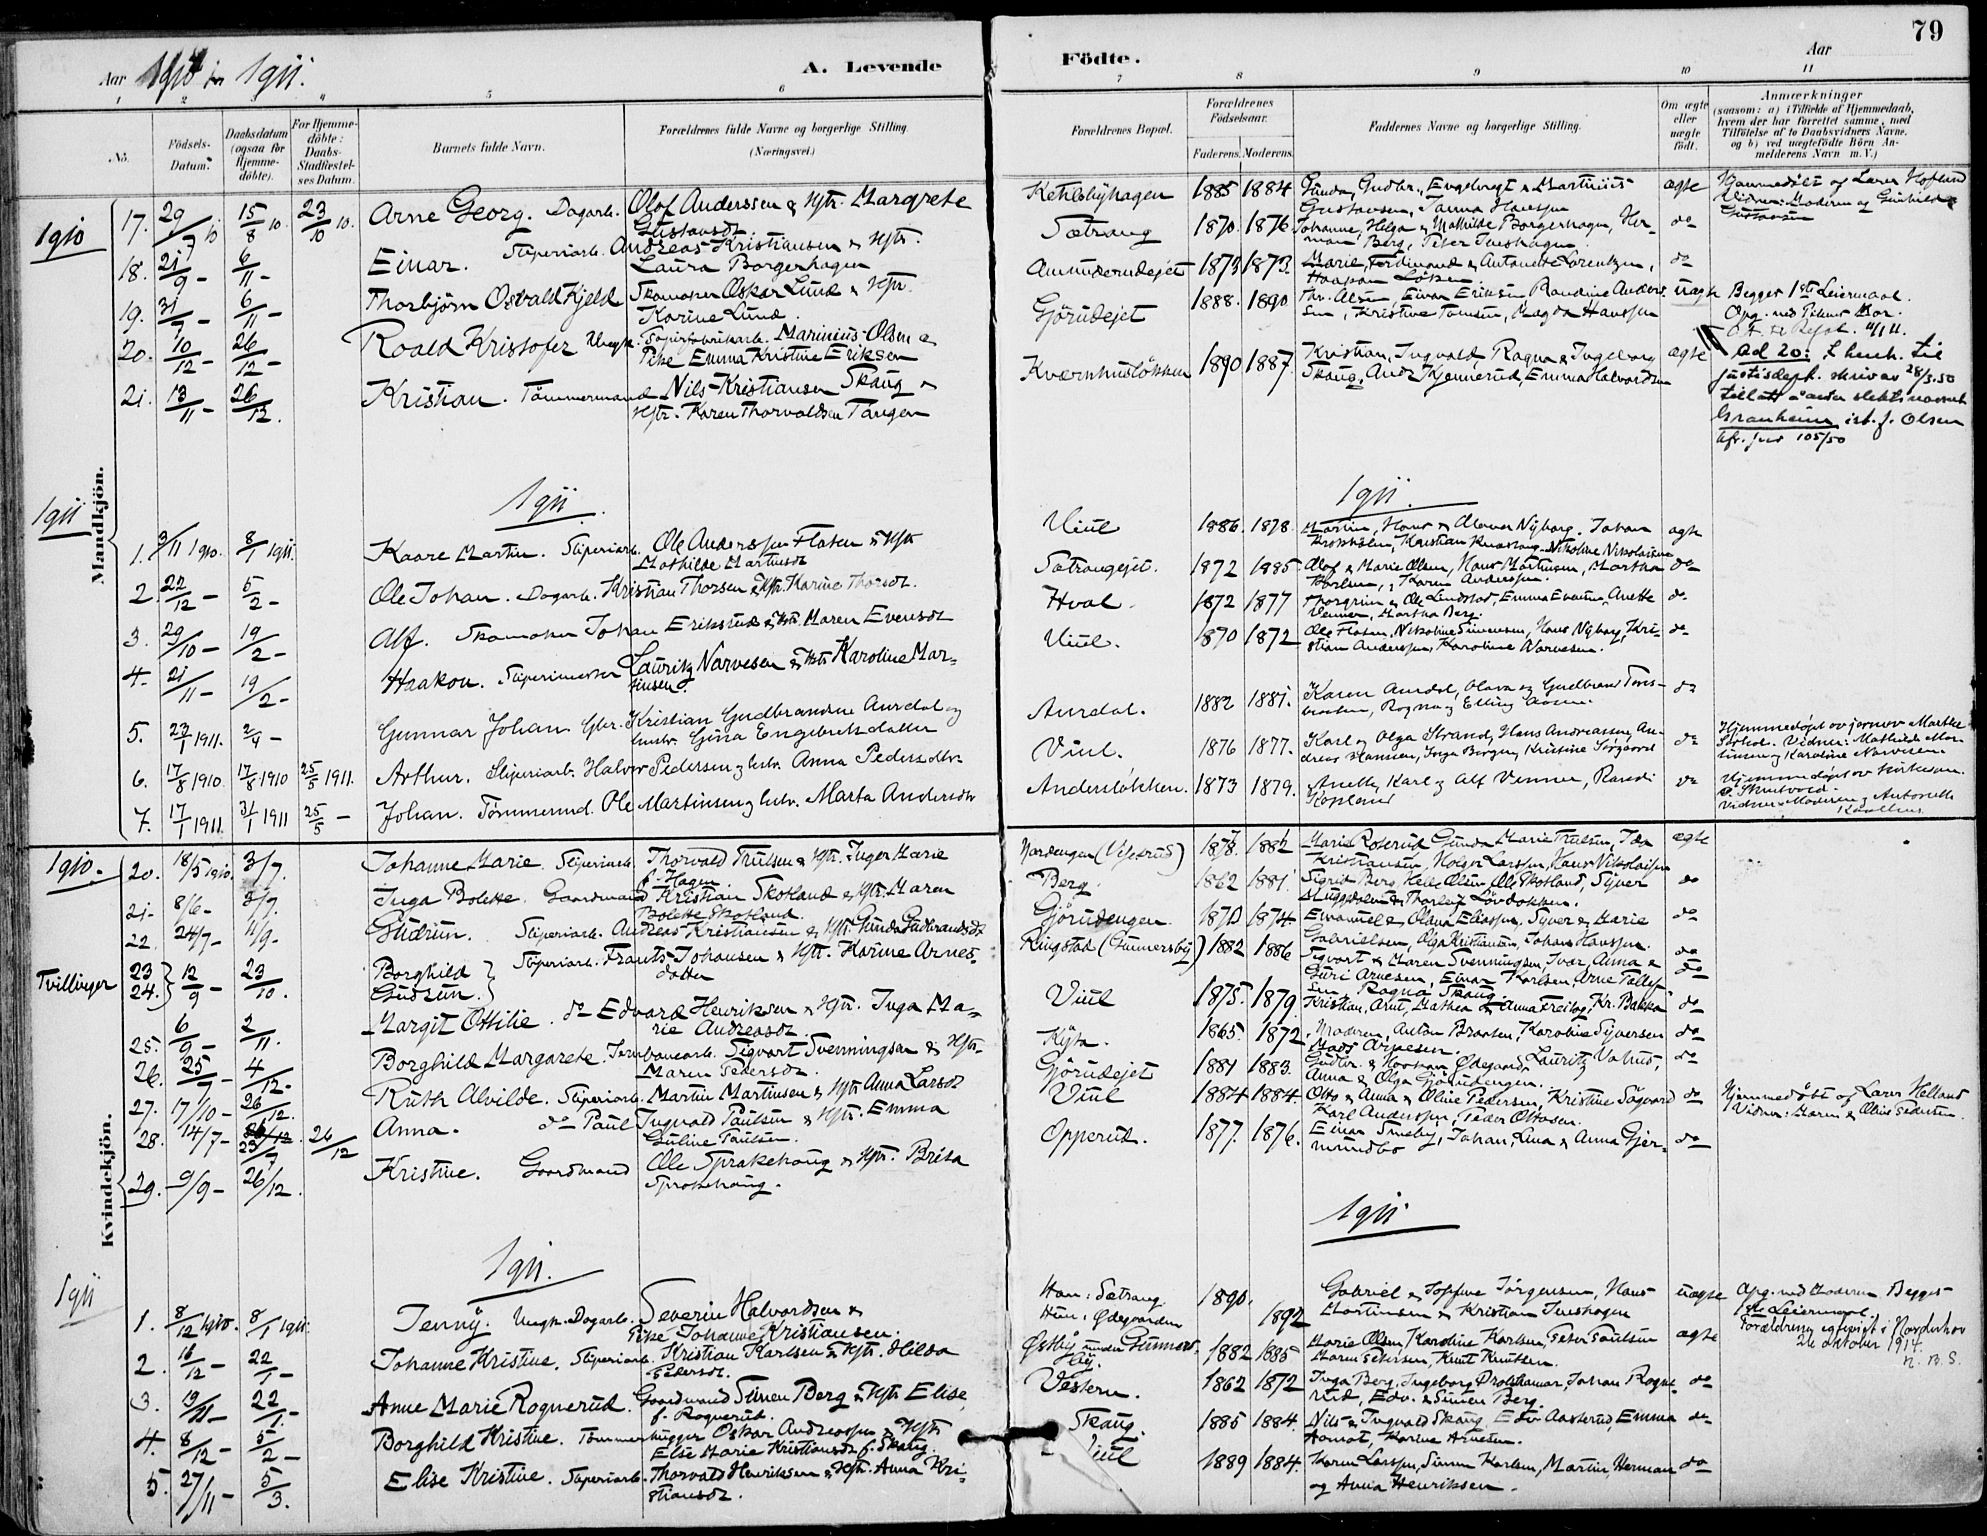 79
Aar 1910 1911.
A. Levende
Födte.
Aar
1 2 4 5 6 7 8 9 10 11
No.
Födsels-
Datum.
Daabsdatum
(ogsaa for
Hjemme-
döbte).
For Hjemme-
döbte:
Daabs-
Stadfæstel-
ses Datum.
Barnets fulde Navn.
Forældrenes fulde Navne og borgerlige Stilling.
(Næringsvei.)
Forældrenes Bopæl.
Forældrenes
Födselsaar.
Faderens. Moderens.
Faddernes Navne og borgerlige Stilling.
Om ægte
eller
uægte
födt.
Anmærkninger
(saasom: a) i Tilfælde af Hjemmedaab,
hvem der har forrettet samme, med
Tilföielse af to Daabsvidners Navne,
og b) ved uægtefödte Börn An-
melderens Navn m. V.)
Mandkjön.
1910
17. 29/7 10 15/8 10. 23/10 10. Arne Georg. Dagarb. Olof Anderssen & Hstr. Margrete
Gustavsdt.
Kehlebyhagen 1885 1884 Gunda, Gudbr., Engebregt & Martinius
Gustavsen, Hanna Hanssen
ægte Hjemmedöbt af Lærer Hofland
Vidner: Moderen og Gunhild
Gustavsen
18. 21/9 – 6/11 – Einar. Sliperiarb. Andreas Kristiansen & Hstr.
Laura Borgerhagen
Sætrang 1870. 1876. Johanne, Helga & Mathilde Borgerhagen, Her-
man Berg, Peter Tveshagen. do
19. 31/7 – 6/11 – Thorbjörn Osvald Kjeld Skomaker Oskar Lund & Hstr.
Karine Lund.
Amunderudejet 1873 1873. Marie, Ferdinand & Antonette Lorentzen,
Haakon Löken do
20. 10/12 – 26/12 – Roald Kristofer Uægt. Marinius Olsen &
Pike Emma Kristine Eriksen
Gjörudejet 1888. 1890 Chr. Olsen, Einar Eriksen, Randine Anders-
sen, Kristine Tomsen, Magda Hanssen
uægte Begges 1ste Leiermaal.
Opg. ved Pikens Mor.
Ad 20: I henh. til
justisdept. skriv av 28/3.50
tillatt å ander slektsnavnet
Granheim ist. f. Olsen
Kfr. jnr 105/50
21. 13/11 – 26/12. Kristian. Tömmermand Nils Kristiansen Skaug &
Hstr. Karen Thorvaldsen Tangen
Kværnhuslökken 1890 1887. Kristian, Ingvald, Ragna & Ingeborg
Skaug, Emma Halvordsen ægte
1911 1911 1911.
1. 3/11 1910. 8/1 1911. Kaare Martin. Sliperiarb. Ole Anderssen Flaten & Hstr
Mathilde Martinsdt
Viul 1886. 1878. Martin, Hans & Olava Nyborg, Johan
Kristian Nikoline Nikolaisen ægte
2. 22/12 – 5/2 – Ole Johan. Dagarb. Kristian Thorsen & Hstr. Karine Thorsdt.
Sætrangejet. 1872 1885. Olof & Marie Olsen, Hans Martinsen, Martha
Karlsen, Karen Anderssen. do
3. 29/10 – 19/2 – Alf. Skomaker Johan Erikstad & Hstr. Maren Evensdt
Hval. 1872 1877 Thorgrim & Ole Lindstad, Emma Evensen, Anette
Venner, Martha Berg. do
4. 21/11 – 19/2 – Haakon. Sliperimester Lauritz Narvesen & Hstr Karoline Mar-
tinsen.
Viul. 1870 1872 Ole Flaten, Nikoline Simensen, Hans Nyborg, Kri-
stian Anderssen, Karoline Narvesen. do
5. 23/1 1911. 2/4 – Gunnar Johan Gbr. Kristian Gudbrandsen Aurdal og
hustr. Gina Engebretsdatter
Aurdal. 1882 1881. Karen Aurdal, Olava og Gudbrand Tors-
Ragna & Elling Aasen. do
6. 17/8 1910. 17/8 1910 25/5 1911. Arthur. Sliperiarb. Halvor Pedersen og hstr. Anna Pedersdtr.
Viul. 1876 1877. Karl og Olga Strand, Hans Andreassen, An-
dreas Hanssen, Inga Borgen, Kristine Sörgaard do
Hjemmedöpt av jormor Marthe
Vidner: Mathilde Mar-
tinsen og Karoline Narvesen.
7. 17/1 1911. 31/1 1911 25/5 – Johan. Tömmermd. Ole Martinsen og hstr. Marta Andersdtr
Anderslökken. 1873 1879. Anette, Karl og Alf Venner, Randi
Kopland do
Hjemmedöpt av kirkesan.
Vidner Moderen og Antonette
Kvindekjön.
1910.
20. 18/5 1910. 3/7. Johanne Marie. Sliperiarb. Thorvald Trulsen & Hstr. Inger Marie
f. Hagen
Nordengen (Vegstrud) 1878. 1882 Marie Roterud, Gunda Marie Trulsen, Ida
Kristiansen, Holger Larssen, Hans Nikolaisen ægte
21. 8/6 – 3/7. Inga Bolette. Gaardmand Kristian Skotland & Hstr. Maren
Bolette Skotland.
Berg. 1862 1881. Sigrid Berg, Helle Olsen, Ole Skotland, Syver
Muggdalen & Thorleif Lövdokken. do
22. 24/7 – 11/9 – Gudrun. Sliperiarb. Andreas Kristiansen & Hstr. Gunda Gudbrandsdt
Gjörudengen. 1870 1874. Emanuel & Olava Eliassen, Syver & Marie
Gabrielsen, Olga Kristiansen, Johans Hanssen. do
Tvillinger
23
24. } 12/9 – 23/10. Borghild
Gudrun. } Sliperiarb. Frants Johansen & Hstr. Karine Arnes-
datter
Ringstad (Gunnersby) 1882 1886 Sigvart & Maren Svenningsen, Ivar, Anna &
Guri Arnesen, Einar Karlsen, Arne Tollef-
sen, Ragna Skaug. do do
25. 6/9 – 2/11. Margit Ottilie. do Edvard Henriksen & Hstr. Inga Ma-
rie Andreasdt.
Viul 1875. 1879. Kristian, Arnt, Mathea & Anna Freitag, Kr. Bakka do
26. 25/9 – 4/12. Borghild Margarete. Jernbanearb. Sigvart Svenningsen & Hstr.
Maren Pedersdt.
Kyta. 1865. 1872. Moderen, Anton Braaten, Karoline Syversen
Mads Arnesen. do
27. 17/10 – 26/12. Ruth Alvilde. Sliperiarb. Martin Martinsen & Hstr Anna Larsdt
Gjörudejet 1881 1883. Gudbr. & Haakon Ödegaard, Lauritz Vahus,
Anna & Olga Gjörudengen. do
28. 14/7 – 26/12. 23/7 26/12 Anna. do Paul Ingvald Paulsen & Hstr. Emma
Guline Paulsen.
Viul 1884 1884. Otto & Anna & Oline Pedersen, Kristine Sögaard
Karl Anderssen, Peder Ottosen. do
Hjemmedöbt af Lærer Helland
Vidner: Maren & Oline Pedersen.
29. 9/9 – 26/12. Kristine. Gaardmand Ole Sprakehaug & Hstr. Brita
Sprakehaug.
Opperud. 1877. 1876. Einar Smeby, Johan, Lina & Anna Gjer-
mundbo do
1911 1911. 1911
1. 8/12 1910. 8/1 1911. Jenny. Uægt. Dagarb. Severin Halvordsen &
Pike Johanne Kristiansen.
Han: Sætrang 1890.
Hun: Ødegaarden 1892
Gabriel & Sofine Jörgensen, Hans
Martinsen & Kristian Tveshagen
uægte Opg. ved Moderen Begges
1ste Leiermaal.
Forældrene egteviet i Norderhov
26 oktober 1914.
N. B. S.
2. 16/12 – 22/1 – Johanne Kristine. Sliperiarb. Kristian Karlsen & Hstr. Hilda
Pedersdt.
Østby under Gunners-
by. 1882 1885 Marie Olsen, Karoline Karlsen, Peter Poulsen
Maren Petersen, Knut Knutsen. ægte
3. 19/11 – 22/1. Anne Marie Rognerud. Gaardmand Simen Berg & Hstr Elise,
f. Rognerud.
Vestern. 1862 1872 Inga Berg, Ingeborg Presthamar, Johan Rogne-
rud, Edv. & Simen Berg. do
4. 8/12 – 5/2 – Borghild Kristine. Tömmerhugger Oskar Andreassen & Hstr
Else Marie Kristiansdt f. Skaug.
Skaug. 1885 1884. Nils & Ingvald Skaug, Edv. Aasterud, Emma
Aamot, Karine Arnesen. do
5. 27/11 – 5/3. Elise Kristine. Sliperiarb. Thorvald Henriksen & Hstr. Anna Kri-
stiansdt.
Viul 1889 1884. Karen Larssen, Simen Karlsen, Martin, Herman
og Anna Henriksen. do